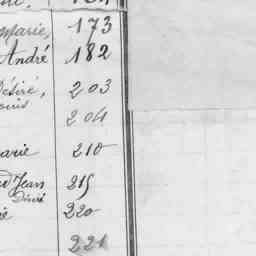 Marie, 173
André 182
Désiré, 203
Louis
204
Marie 210
Jean 215
Désiré
220
221